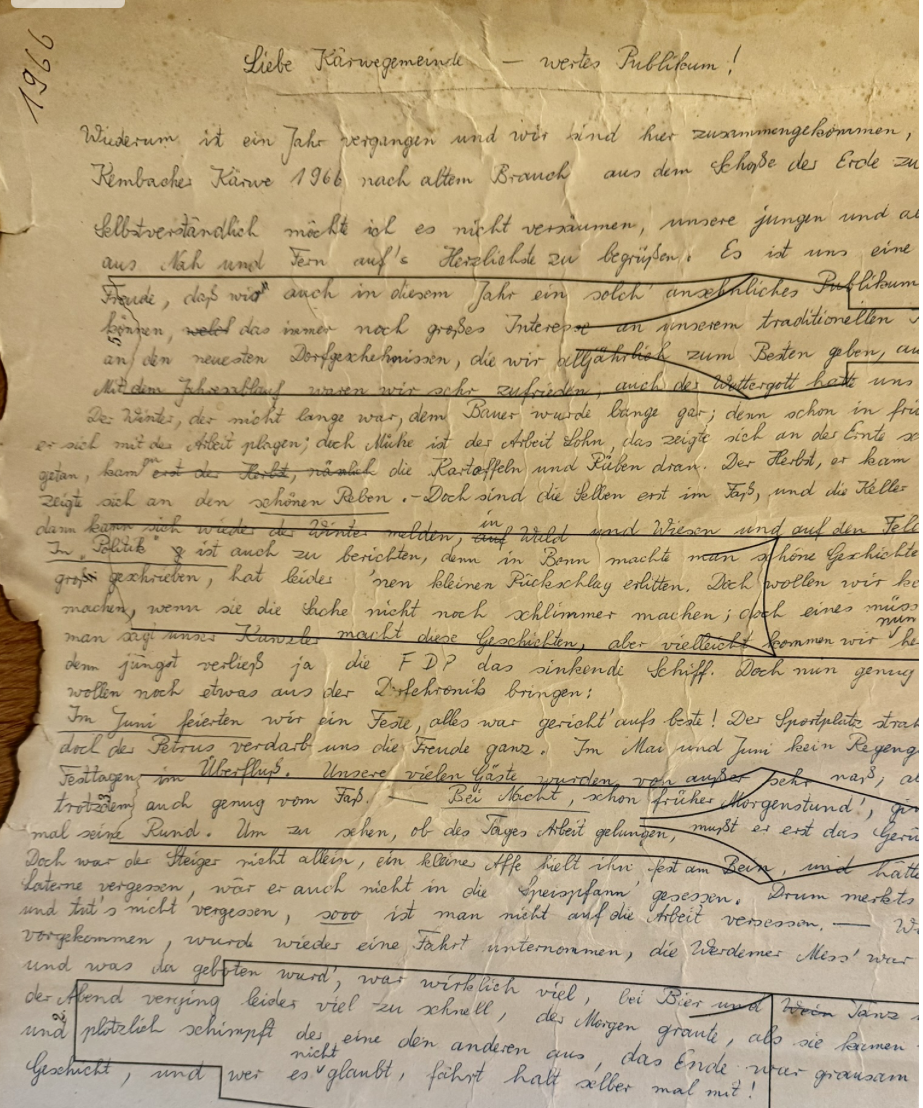 1966
Liebe Kärwegemeinde – wertes Publikum!
Wiederum ist ein Jahr vergangen und wir sind hier zusammengekommen,
Kembacher Kärwe 1966 nach altem Brauch aus dem Schoße der Erde zu
Selbstverständlich möchte ich es nicht versäumen, unsere jungen und
aus Nah und Fern auf's Herzlichste zu begrüßen. Es ist uns eine
Freude, daß wir auch in diesem Jahr ein solch' ansehnliches Publikum
können, das immer noch großes Interesse an unserem traditionellen
an den neuesten Dorfgeschehnissen, die wir alljährlich zum Besten geben,
Mit dem Jahresablauf waren wir sehr zufrieden, auch der Wettergott hatte uns
Der Winter, der nicht lange war, dem Bauer wurde bange gar; denn schon in
er sich mit der Arbeit plagen; doch Mühe ist der Arbeit Lohn, das zeigte sich an der Ernte
getan, kam erst der Herbst, nämlich die Kartoffeln und Rüben dran. Der Herbst, er kam
zeigte sich an den schönen Reben. – Doch sind die Sellen erst im Faß, und die Keller
dann kann sich wieder der Winter melden, auf in Wald und Wiesen und auf den
In "Politik" ist auch zu berichten, denn in Bonn machte man schöne Geschichte
groß geschrieben, hat leider 'nen kleinen Rückschlag erlitten. Doch wollen wir
machen, wenn sie die Sache nicht noch schlimmer machen; doch eines
man sagt unser Kanzler macht diese Geschichten, aber vielleicht kommen wir nun
denn jüngst verließ ja die FDP das sinkende Schiff. Doch nun genug
wollen noch etwas aus der Dorfchronik bringen:
Im Juni feierten wir ein Feste, alles war gericht' aufs beste! Der Sportplatz
doch der Petrus verdarb uns die Freude ganz. Im Mai und Juni kein
Festtagen, im Überfluß. Unsere vielen Gäste wurden von außer sehr naß,
trotzdem auch genug vom Faß. — Bei Nacht, schon früher Morgenstund',
mal seine Rund. Um zu sehen, ob des Tages Arbeit gelungen, mußt er erst das
Doch war der Steiger nicht allein, ein kleiner Affe hielt ihn fest am Bein, und hätte
Laterne vergessen, wär er auch nicht in die Speispfann' gesessen. Drum merkts
und tut's nicht vergessen, sooo ist man nicht auf die Arbeit versessen. —
vorgekommen, wurde wieder eine Fahrt unternommen, die Werdemer Mess' war
und was da geboten wurd', war wirklich viel, bei Bier und Wein Tanz
der Abend verging leider viel zu schnell, der Morgen graute, als sie kamen
und plötzlich schimpft der eine den anderen aus, das Ende war grausam
Geschicht, und wer es nicht glaubt, fährt halt selber mal mit!